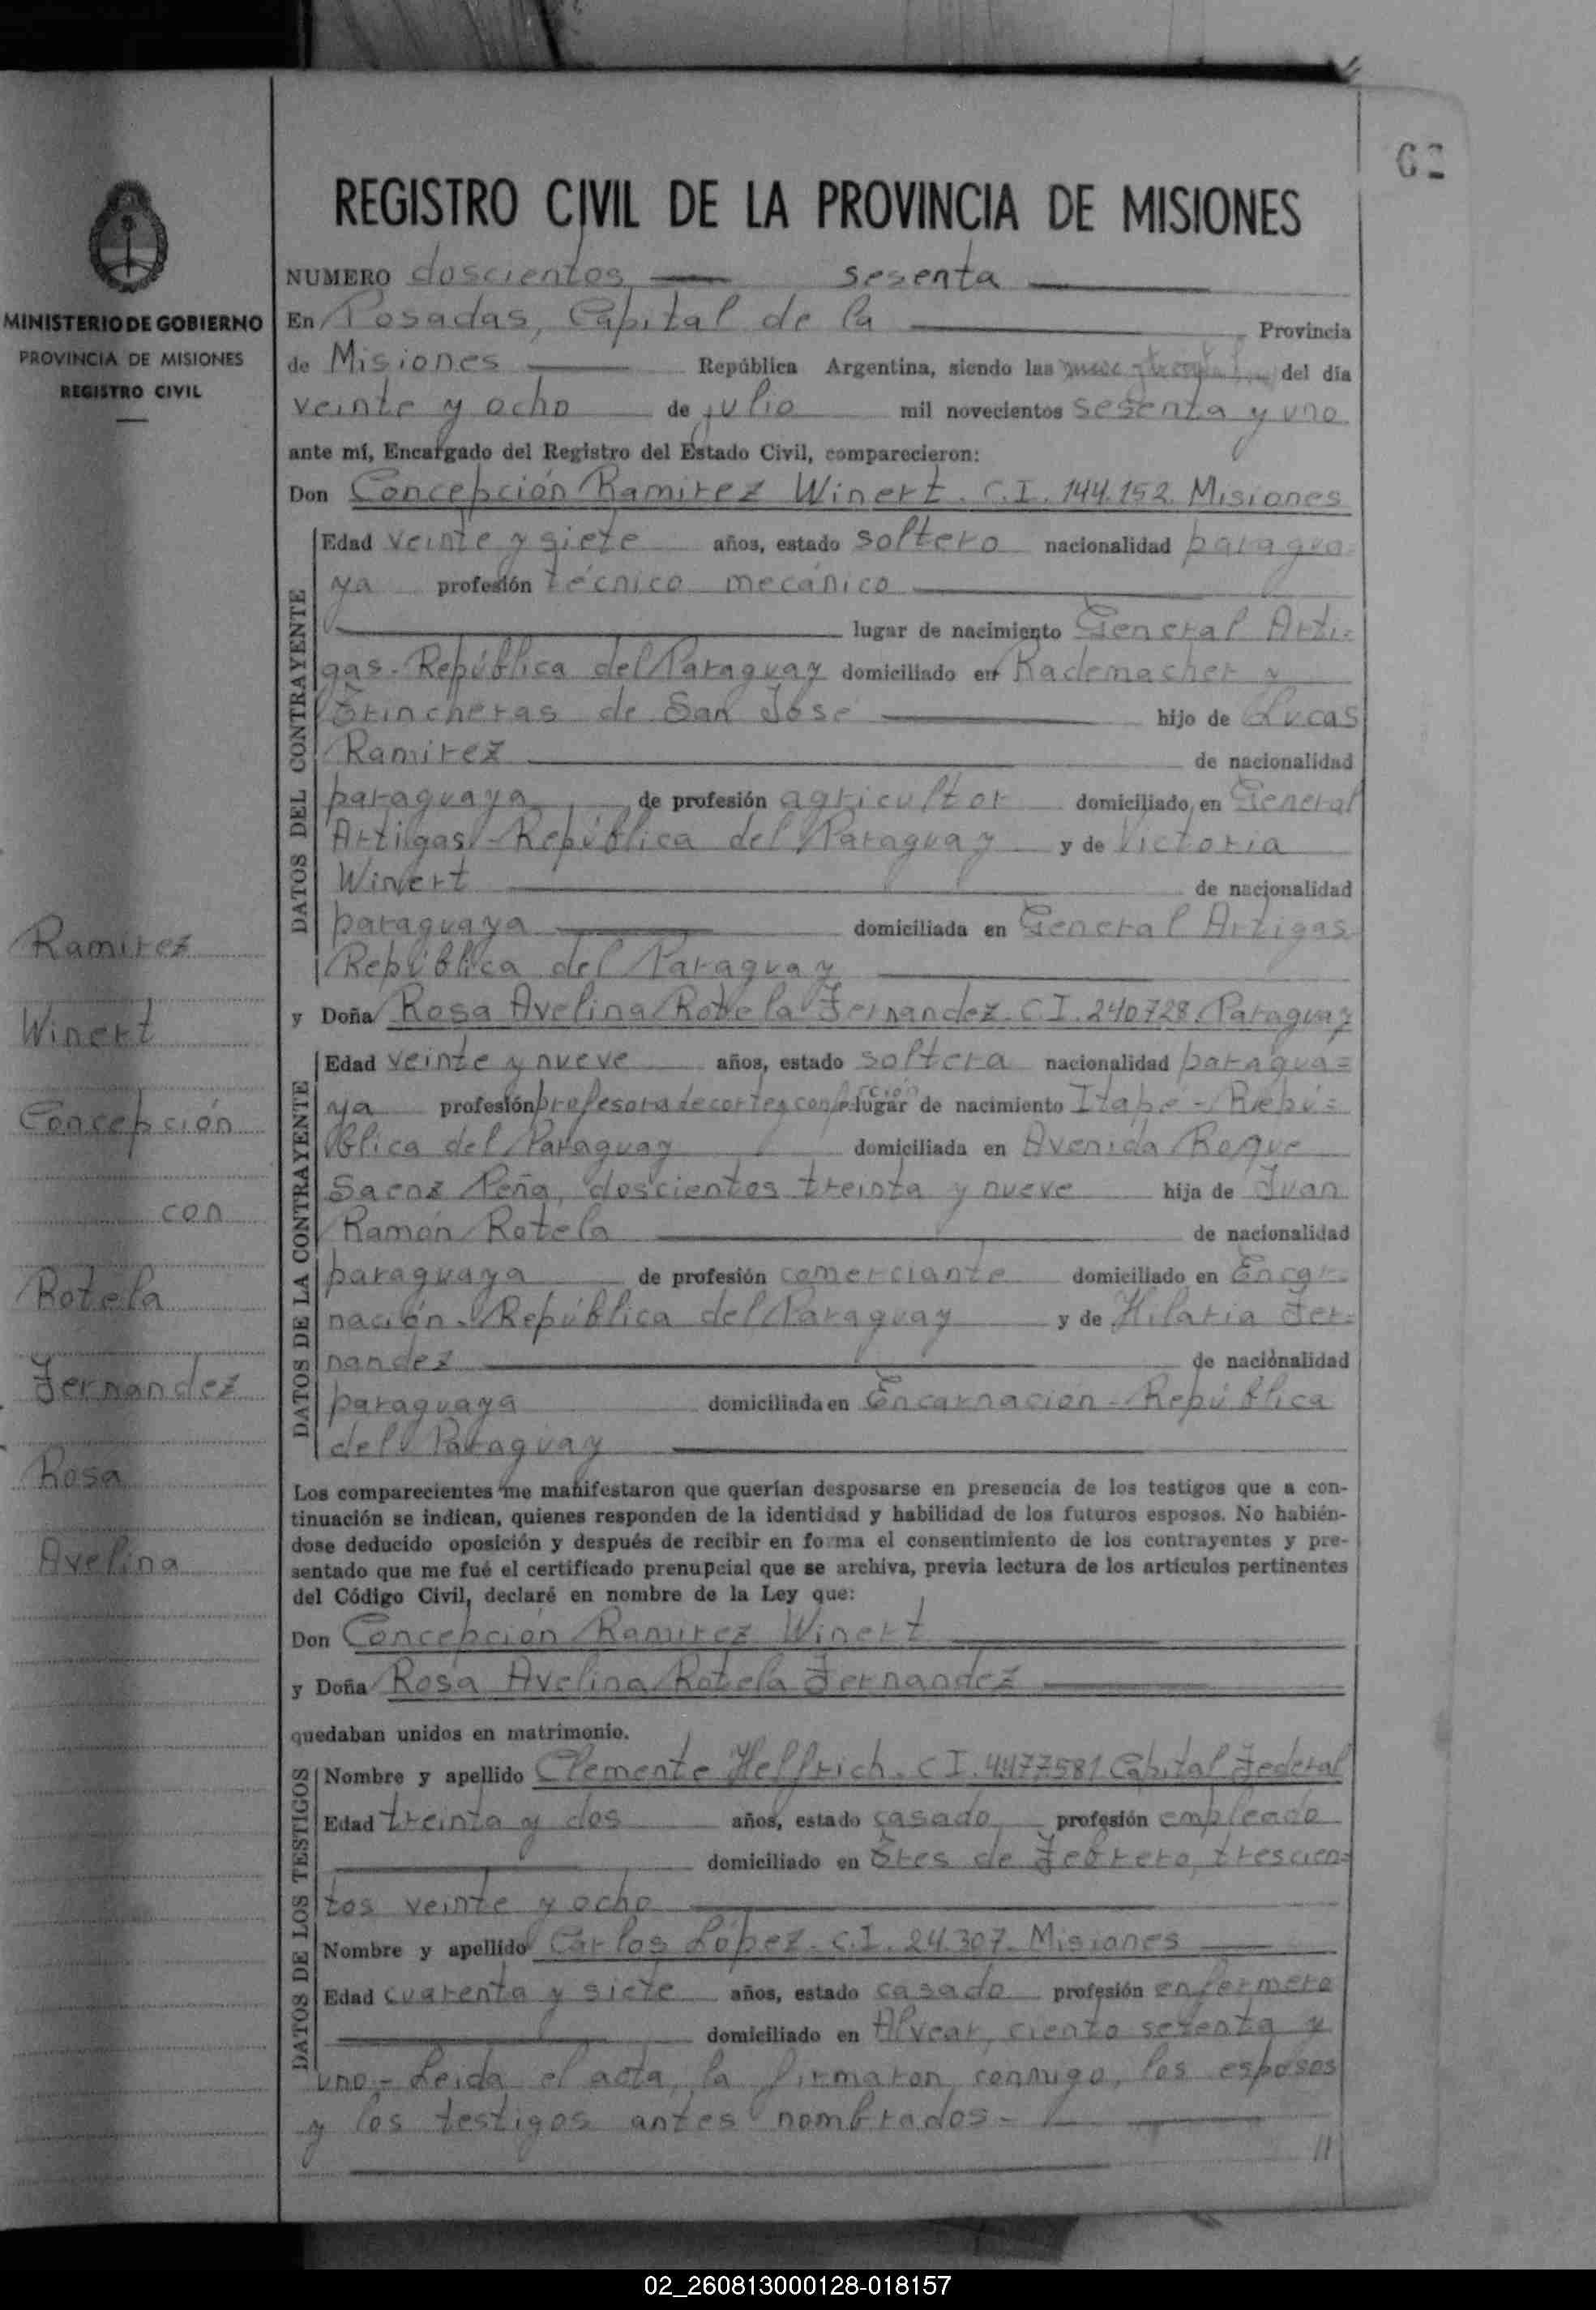 62
MINISTERIO DE GOBIERNO
PROVINCIA DE MISIONES
REGISTRO CIVIL
Ramirez
Winert
Concepción
con
Rotela
Fernandez
Rosa
Avelina
REGISTRO CIVIL DE LA PROVINCIA DE MISIONES
NUMERO doscientos sesenta
En Posadas, Capital de la Provincia
de Misiones República Argentina, siendo las del día
veinte y ocho de julio mil novecientos sesenta y uno
ante mí, Encargado del Registro del Estado Civil, comparecieron:
Don Concepción Ramirez Winert. C.I. 144.152. Misiones
DATOS DEL CONTRAYENTE
Edad veinte y siete años, estado soltero nacionalidad paragua
ya profesión técnico mecánico
lugar de nacimiento General Arti=
gas-República del Paraguay domiciliado en Rademacher y
Trincheras de San José hijo de Lucas
Ramirez de nacionalidad
paraguaya de profesión agricultor domiciliado en General
Artigas-República del Paraguay y de Victoria
Winert de nacionalidad
paraguaya domiciliada en General Artigas
República del Paraguay
y Doña Rosa Avelina Rotela Fernandez. C.I. 240728. Paraguay
DATOS DE LA CONTRAYENTE
Edad veinte y nueve años, estado soltera nacionalidad paragua=
ya profesión profesora de corte y confección lugar de nacimiento Itape-Repú=
blica del Paraguay domiciliada en Avenida Roque
Saenz Peña, doscientos treinta y nueve hija de Juan
Ramón Rotela de nacionalidad
paraguaya de profesión comerciante domiciliado en Encar=
nación-República del Paraguay y de Hilaria Fer=
nandez de nacionalidad
paraguaya domiciliada en Encarnación-República
del Paraguay
Los comparecientes me manifestaron que querían desposarse en presencia de los testigos que a con-
tinuación se indican, quienes responden de la identidad y habilidad de los futuros esposos. No habién-
dose deducido oposición y después de recibir en forma el consentimiento de los contrayentes y pre-
sentado que me fué el certificado prenupcial que se archiva, previa lectura de los artículos pertinentes
del Código Civil, declaré en nombre de la Ley que:
Don Concepción Ramirez Winert
y Doña Rosa Avelina Rotela Fernandez
quedaban unidos en matrimonio.
DATOS DE LOS TESTIGOS
Nombre y apellido Clemente Helfrich. C I. 4477581 Capital Federal
Edad treinta y dos años, estado casado profesión empleado
domiciliado en Tres de Febrero, trescien=
tos veinte y ocho
Nombre y apellido Carlos López. C.I. 24.307. Misiones
Edad cuarenta y siete años, estado casado profesión enfermero
domiciliado en Alvear, ciento setenta y
uno.- Leida el acta, la firmaron conmigo, los esposos
y los testigos antes nombrados.-
//
02_260813000128-018157